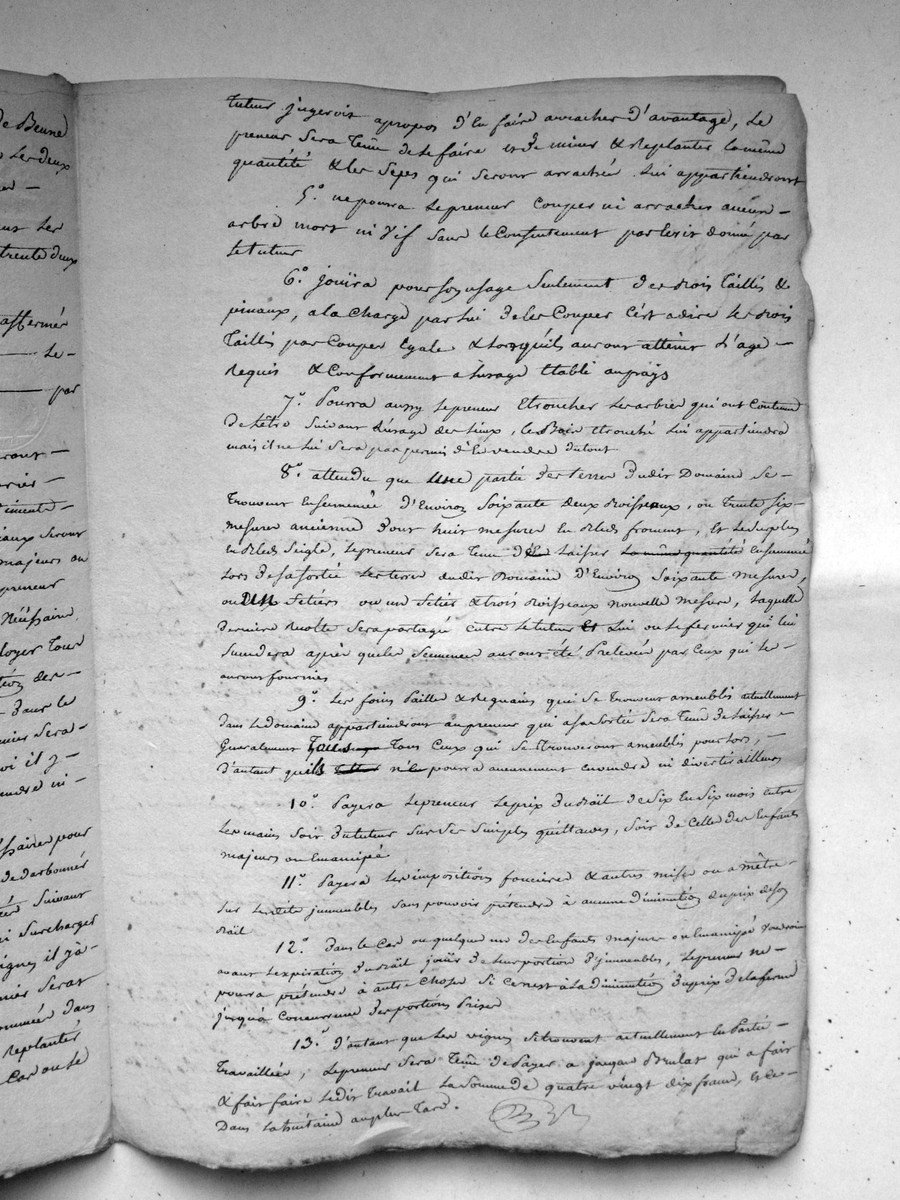 de Beune
Les deux
trente deux
affermés
Le-
par
majeurs ou
preneur
Nécéssaire
dans le
suivant
surcharger
Replanter
Cas ou le
tuteur jugeroit apropos d'en faire arracher d'avantage, Le
preneur Sera Tenû de le faire et de miner & Replanter la même
quantité & les Seps qui seront arrachés lui appartiendront
5.° ne poura Le preneur Couper ni arracher aucun-
arbre mort ni vif sans le Consentement par Ecrit donné par
Le tuteur
6.° jouïra pour son usage Seulement des Bois Taillis &
pinaux, a la Charge par lui de les Couper C'est adire Les Bois
Taillis par Coupes Egale & Lorsquils auront atteint L'age-
Requis & Conformément a lusage Etabli au païs
7.° Poura aussy Le preneur Etroncher Les arbres qui ont Coutume
de Lêtre Suivant l'usage des lieux, le Bois Etronché lui appartiendra
mais il ne Lui Sera pas permis d'En vendre du tout
8.° attendu que Une partie des terres dudit Domaine Se-
Trouvent Ensemencée d'Environ Soixante deux Boisseaux, ou trente Six-
mesures ancienne dont huit mesures En Bleds froment, Et Le Surplus
En Bleds Seigle, Le preneur Sera Tenu de laisser la même quantité Ensemencée
Lors de sa sortie Les terres dudit Domaine d'Environ Soixante mesures,
ou Setiers ou un Setier & trois Boisseaux nouvelle mesure, Laquelle
derniere Recolte Sera partagé entre Le tuteur Et Lui ou Le fermier qui lui
Succedera après que les Semences auront été Prelevées par Ceux qui Les-
auront fournies
9.° Les foins Paille & Regains qui Se trouvent ameublés actuellement
dans le domaine appartiendront au preneur qui a Sa Sortie Sera Tenû de laisser-
Generalement Tous Ceux qui Se trouveront ameublés pour lors,-
d'autant quils poura aucunement en vendre ni divertir ailleurs
10.° Payera Le preneur Le prix du Bail de Six En Six mois entre
Les mains Soit du tuteur Sur Ses Simples quittances, Soit de Celle des Enfants
majeurs ou Emancipé
11.° Payera Les impositions foncieres & autres mises ou a mêttre-
Sur Lesdits jmmeubles Sans pouvoir prétendre à aucune diminution du prix de Son
Bail
12.° Dans le Cas ou quelque un des Enfants majeur ou Emancipé
avant Lexpiration du Bail jouïr de Leur portion d'jmmeubles, Le preneur ne-
poura prétendre à autre Chose Si Ce n'est à La diminution du prix de La ferme
jusqu'à Concurrence des portions Prises
13.° d'autant que Les vignes Se trouvent actuellement En Partie-
Travaillée, Le preneur Sera Tenû de Payer a jacques Brulat qui a fait
& fait faire Ledit Travail La Somme de quatre vingt dix francs, Et Ce-
Dans La huitaine au plus Tard.